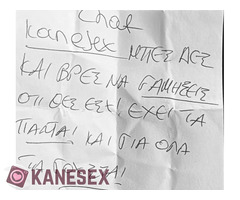 chat
kanesex ΜΠΕΣ ΔΕΣ
ΚΑΙ ΒΡΕΣ ΝΑ ΓΑΜΗΣΕΙΣ
ΟΤΙ ΘΕΣ ΕΧΕΙ ΤΑ
ΠΑΝΤΑ! ΚΑΙ ΓΙΑ ΟΛΑ
ΤΑ ΓΟΥΣΤΑ!
KANESEX